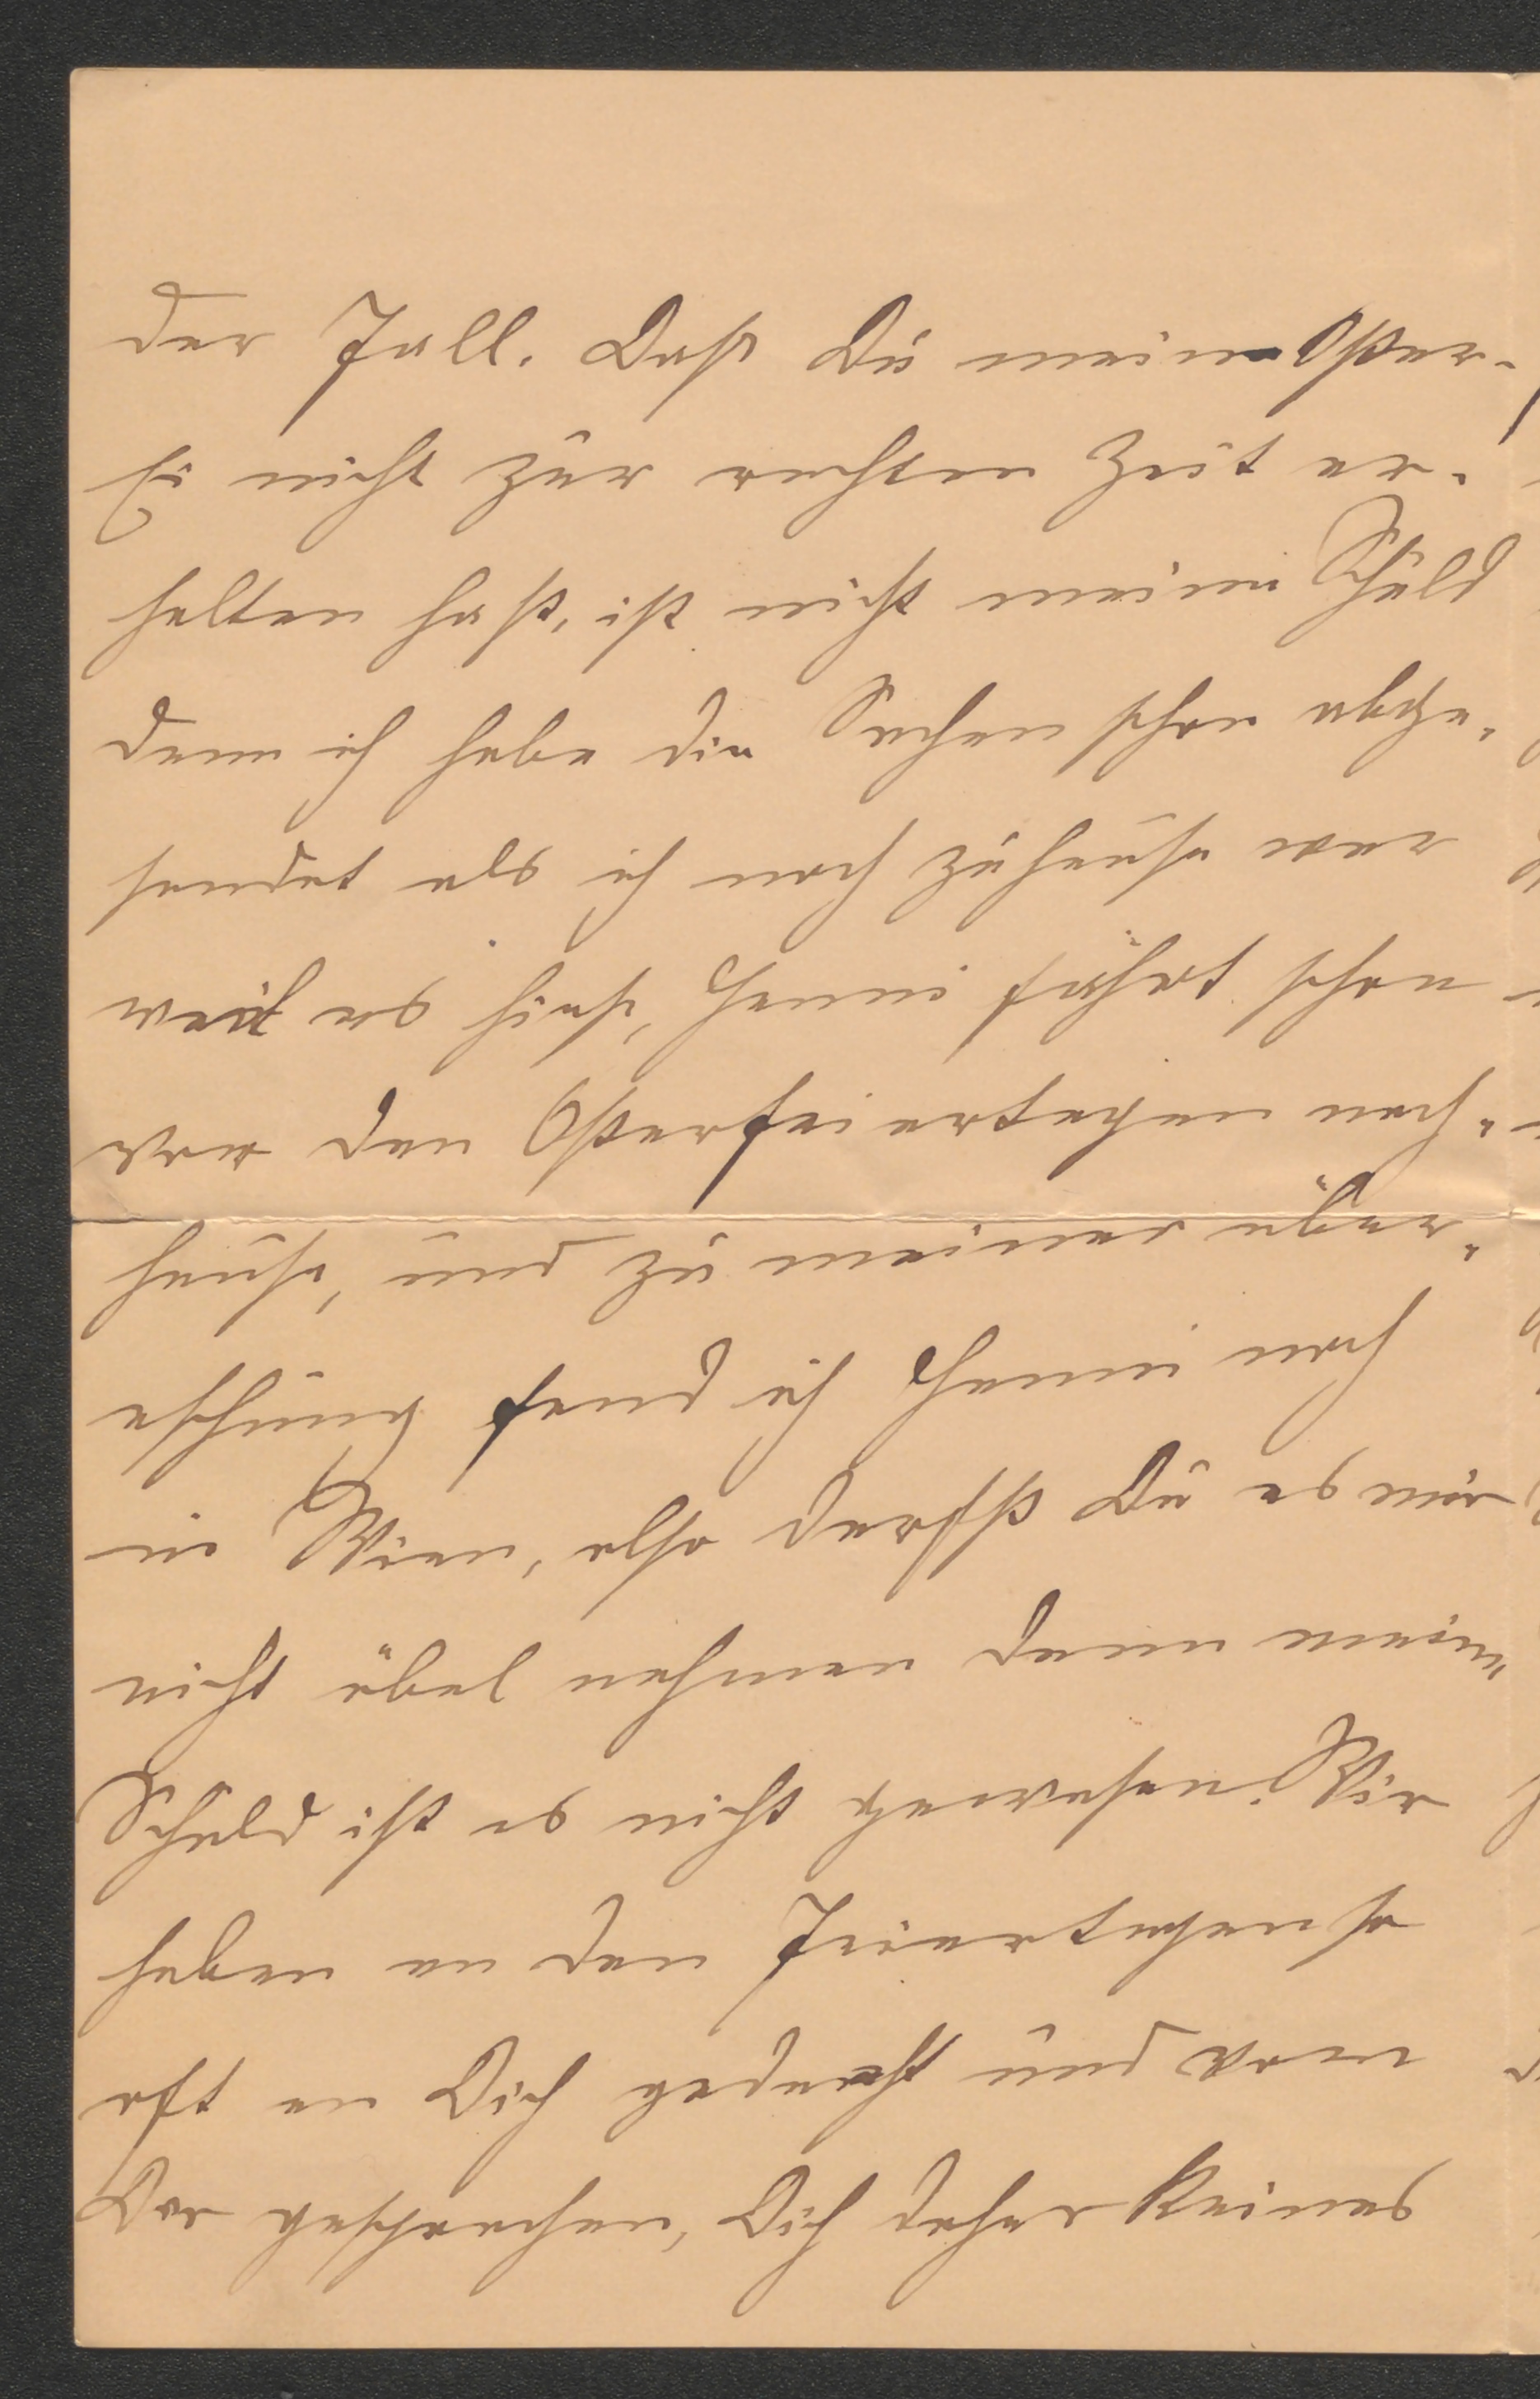 der Fall. Daß Du meine Oster-
Ei nicht zur rechten Zeit er-
halten hast, ist nicht meine Schuld
denn ich habe die Sachen schon abge-
sendet als ich noch zuhause war
weil es hieß, Henni fährt schon
vor den Osterfeiertagen nach-
hause, und zu meiner über-
aschung fand ich Henni noch
in Wien, also darfst Du es mir
nicht übel nehmen denn meine
Schuld ist es nicht gewesen. Wir
haben an den Feiertagen so
oft an Dich gedacht und von
Dir gesprochen, Dich daher keines